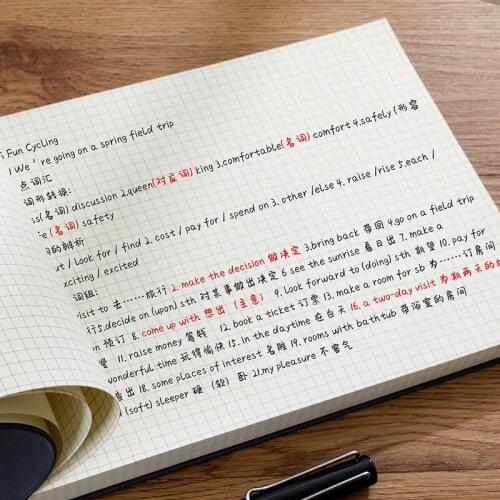 Fun Cycling
We're going on a spring field trip
点词汇
词形转换:
(名词) discussion 2.queen(对反词) king 3.comfortable(名词) comfort 4.safely (形容
(名词) safety
的辨析
/ look for / find 2. cost / pay for / spend on 3. other /else 4. raise /rise 5.each /
exciting / excited
词组:
visit to 去……旅行 2. make the decision 做决定 3.bring back 带回 4.go on a field trip
行5.decide on (upon) sth 对某事做出决定 6 see the sunrise 看日出 7. make a
预订 8. come up with 想出 (主意) 9. Look forward to (doing) sth 期望 10. pay for
11. raise money 筹钱 12. book a ticket 订票 13. make a room for sb 为……订房间
wonderful time 玩得愉快 15. in the daytime 在白天 16. a two-day visit 为期两天的
出 18. some places of interest 名胜 19. rooms with bathtub 带浴室的房间
(soft) sleeper 硬 (软) 卧 21.my pleasure 不客气